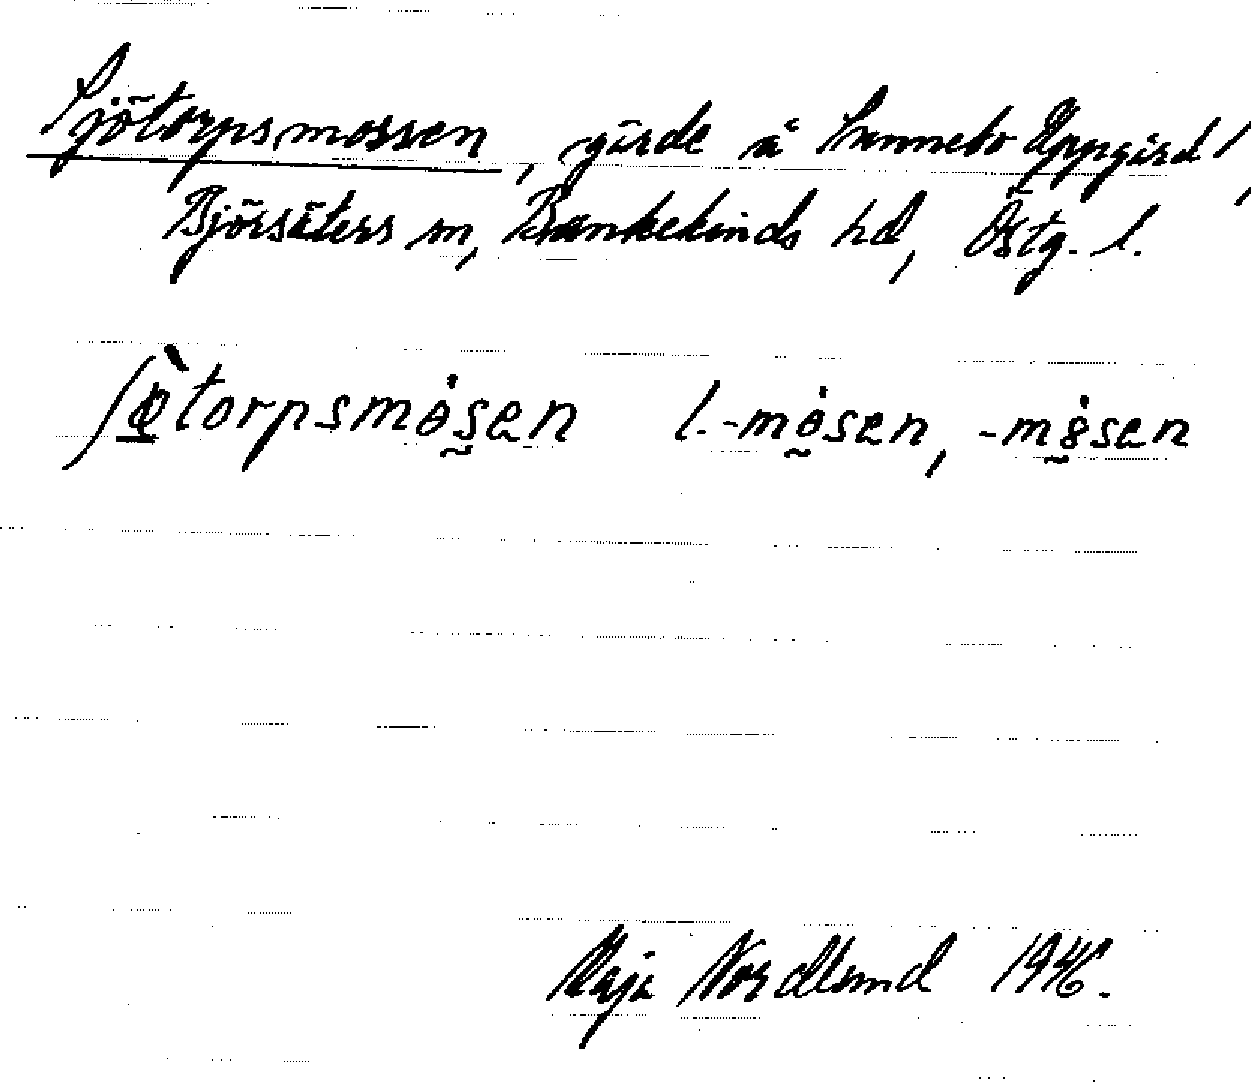 Sjötorpsmossen, gärde å Sunnebo Uppgård,
Björsäters sn, Bankekinds hd, Östg. l.
ʃø̀torpsmósen l. -mósen, -mósen
Maja Nordlund 1946.